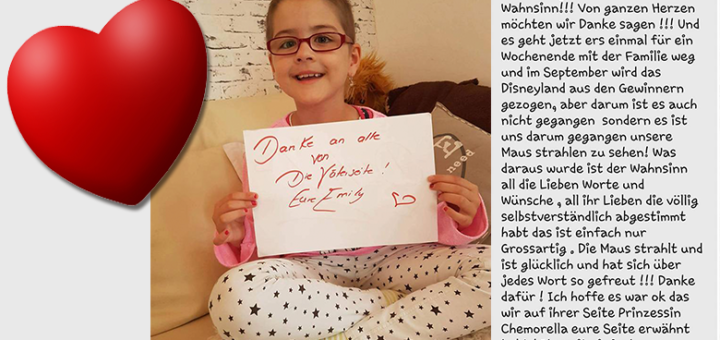 Danke an alle
von
Die Väterseite!
Eure Emily
need
Wahnsinn!!! Von ganzen Herzen
möchten wir Danke sagen !!! Und
es geht jetzt ers einmal für ein
Wochenende mit der Familie weg
und im September wird das
Disneyland aus den Gewinnern
gezogen, aber darum ist es auch
nicht gegangen sondern es ist
uns darum gegangen unsere
Maus strahlen zu sehen! Was
daraus wurde ist der Wahnsinn
all die Lieben Worte und
Wünsche , all ihr Lieben die völlig
selbstverständlich abgestimmt
habt das ist einfach nur
Grossartig . Die Maus strahlt und
ist glücklich und hat sich über
jedes Wort so gefreut !!! Danke
dafür ! Ich hoffe es war ok das
wir auf ihrer Seite Prinzessin
Chemorella eure Seite erwähnt